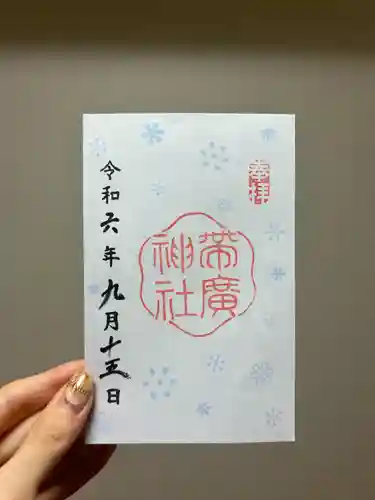 奉拝
帯廣
神社
令和六年九月十五日